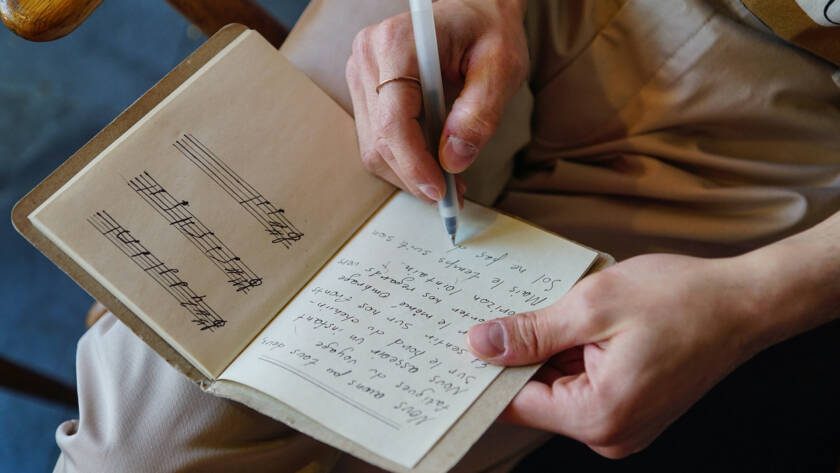 Nous avions pu tous deux
fatigues du voyage
Nous asseoir un instant
Sur le bord du chemin-
sentir sur nos fronts
le même ombrage
porter nos regards vers
horizon lointain.
Mais le temps suit son
Sol ne pas